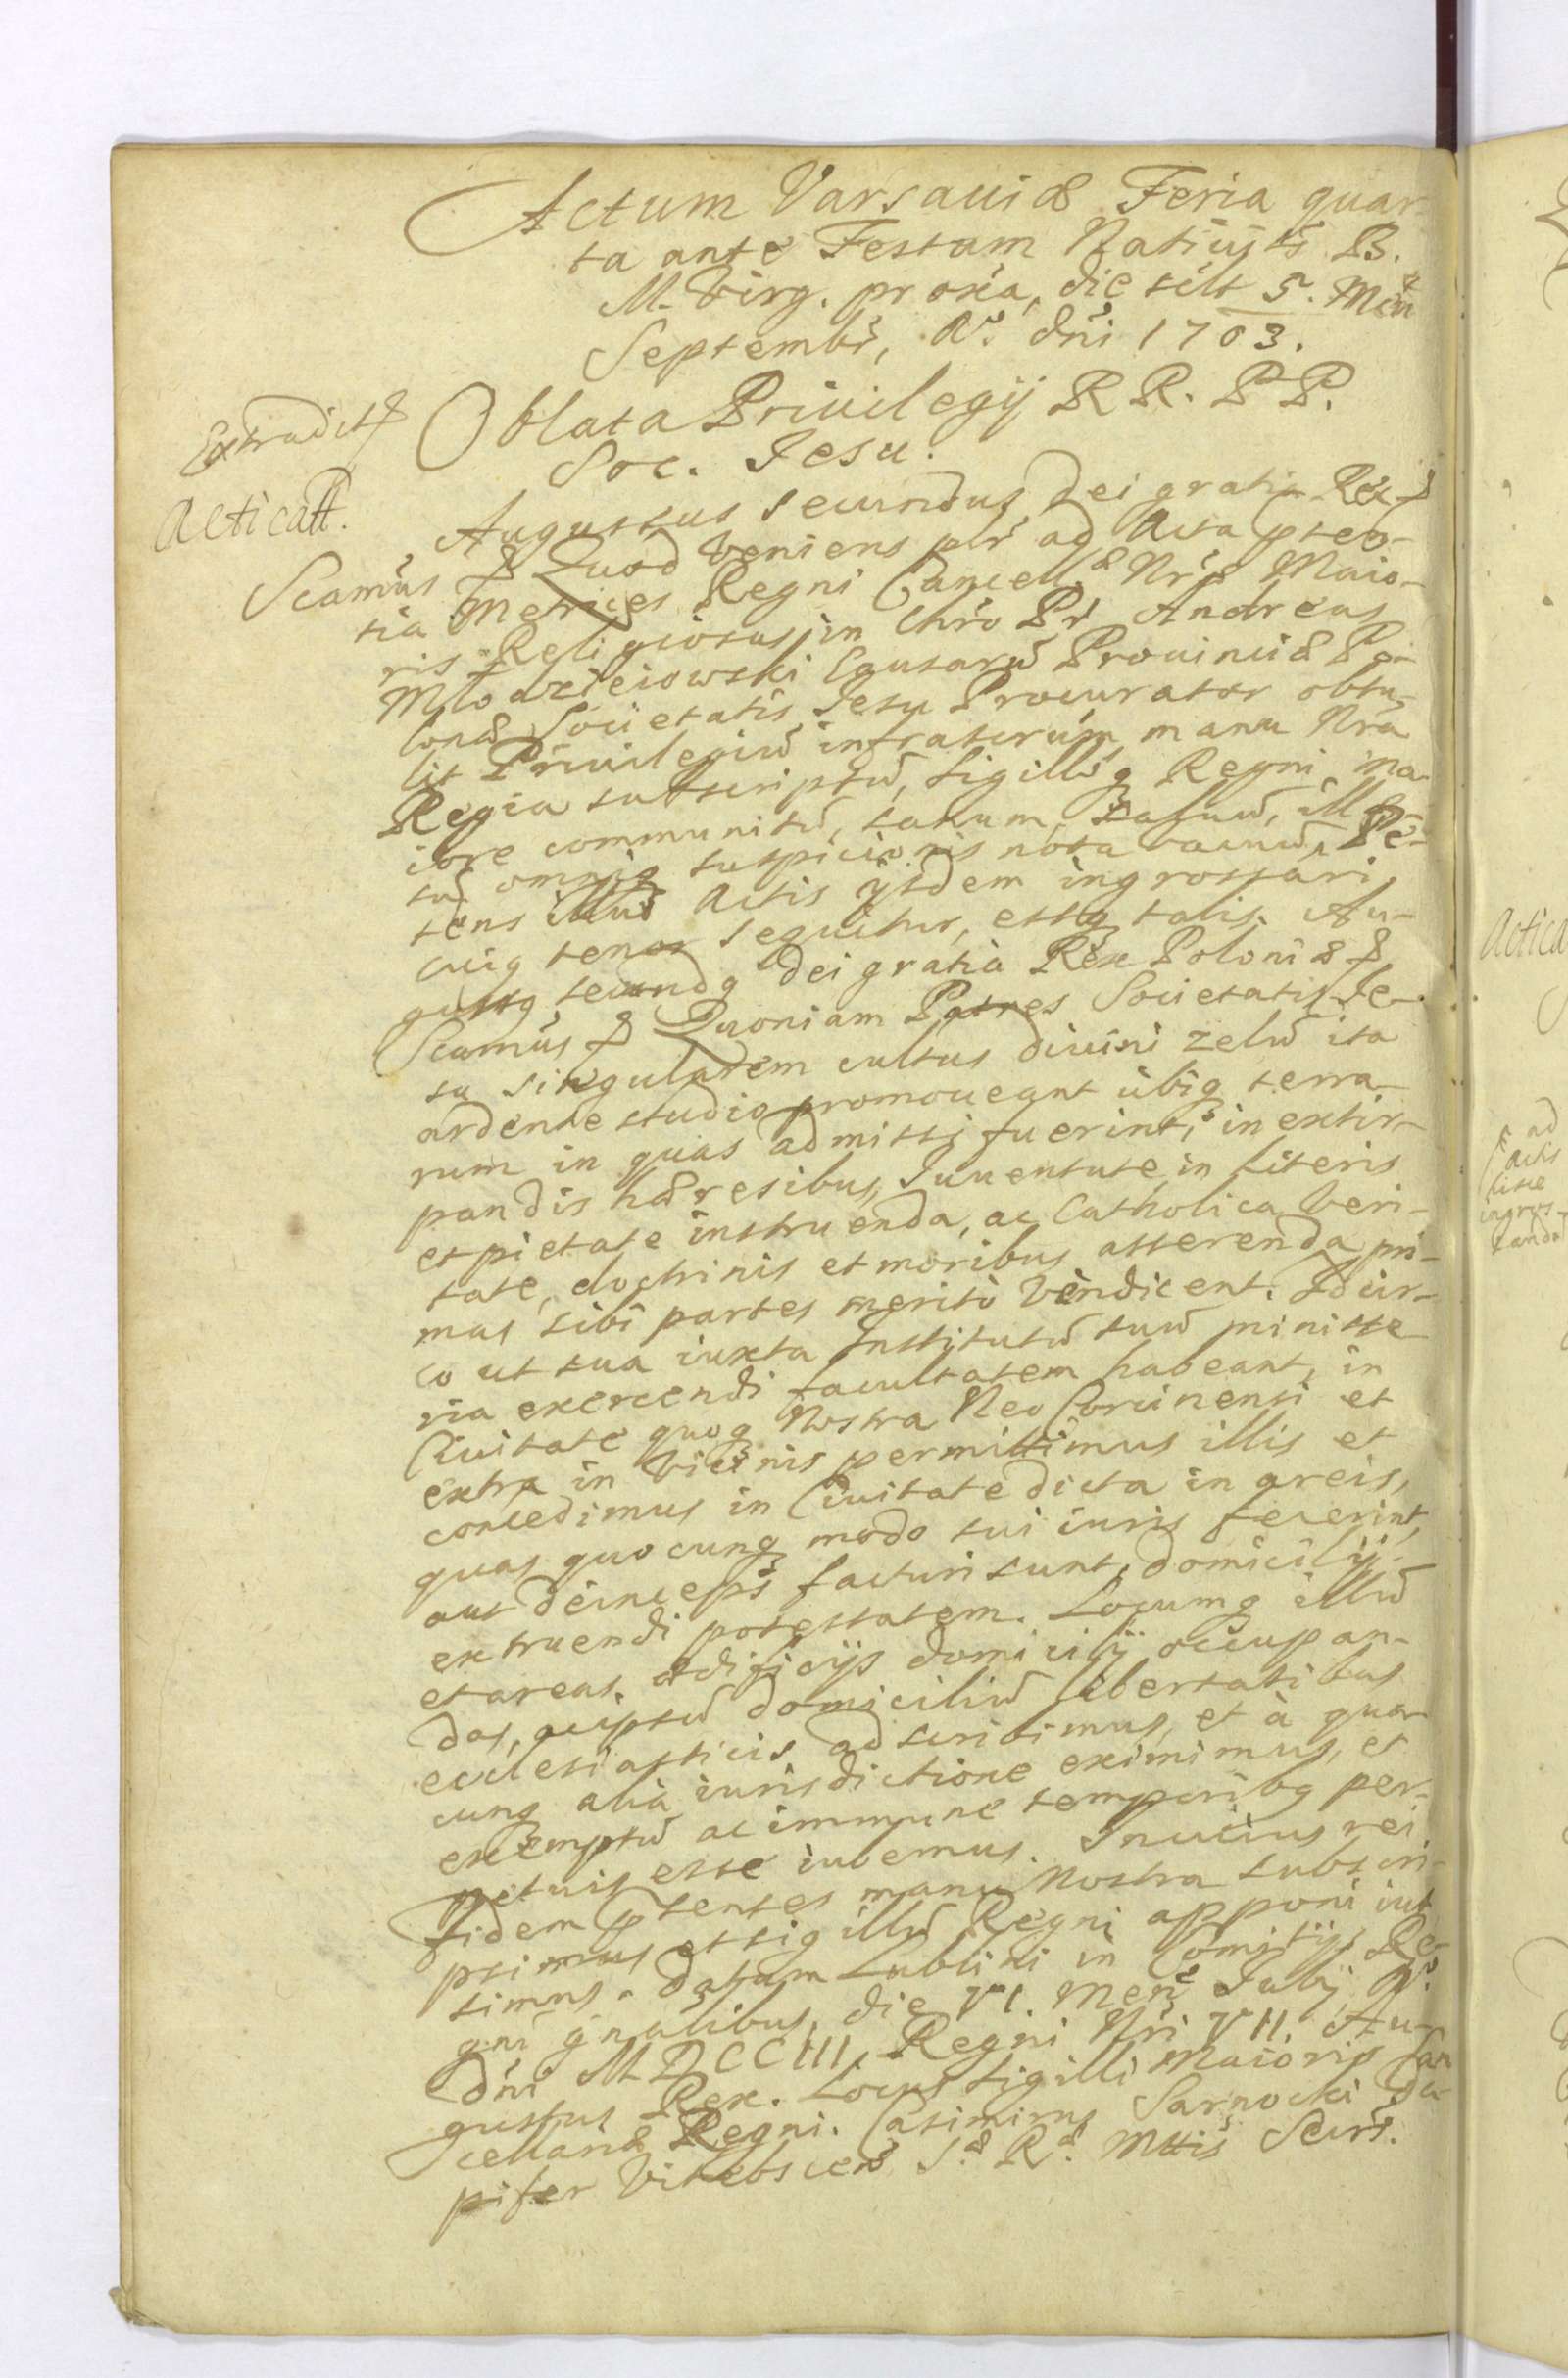 Actum Varsaviæ Feria quar-
ta ante Festum Nativjts B.
M. Virg. proxía, die sclt 5. Men
Septembr, Ao. dni 1703.
Extradit
Oblata Privilegij R R. P P.
Soc. Jesu.
Acticatt.
Augustus secundus Dei gratia Rex
Scamus Quod veniens plr ad Acta psen-
tia Metrices Regni Cancell Nræ Maio-
ris Religiosus in Chro Pr Andreas
Młodzieiowski Causarū Provinciæ Po-
lonæ Societatis Jesu Procurator obtu-
lit Privilegiū infrascrium manu Nra
Regia subscriptū, sigilloq Regni ma-
iore communitū, sanum, saluū, ille-
sū omniq suspicionis nota vacuū, Pe-
tens illud Actis ijsdem ingrossari,
cuiq tenor sequitur, estq talis. Au-
gustq secundq Dei gratia Rex Poloniæ
Scamus Quoniam Patres Societatis Je-
su singularem cultus divini zelū ita
ardente studio promoveant ubiq terra-
rum in quas admissi fuerint, in extir-
pandis hæresibus, Juventute in literis
et pietate instruenda, ac Catholica veri-
tate, doctrinis et moribus asserenda pri-
mas sibi partes merito vendicent. Idcir-
co ut sua iuxta Institutū suū ministe-
ria exercendi facultatem habeant, in
Civitate quoq Nostra Neo Corcinensi et
extra in vicinis permittimus illis et
concedimus in Civitate dicta in areis,
quas quocunq modo sui iuris fecerint,
aut deinceps facturi sunt, domicilij
extruendi potestatem. Locumq illū
et areas, ædificijs domicilij occupan-
das, acipsū domiciliū libertatibus
ecclesiasticis adscribimus, et à qua-
cunq alia iurisdictione eximimus, et
exemptū ac immune temporibq per-
petuis esse iubemus. In cuius rei
fidem psentes manu Nostra subscri-
psimus et sigillū Regni apponi ius-
simus. Datum Lublini in Comitijs Re-
gni gnalibus, die VI. Men Julij Ao.
dni MDCCIII, Regni Nri VII. Au-
gustus Rex. Locus sigilli Maioris Can
cellariæ Regni. Casimirus Sarnocki Da-
pifer Vitebscen S. R. Mttis Secrs.
Actica
ad
Actis